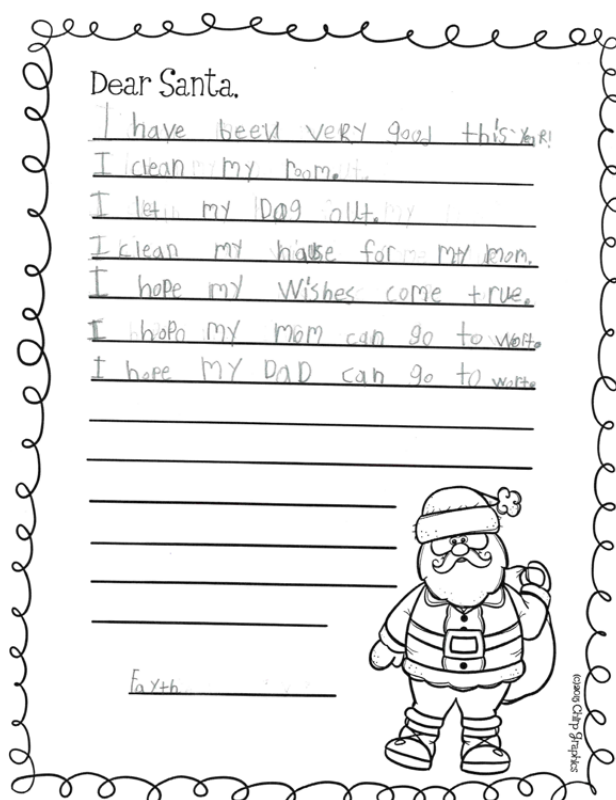 Dear Santa,
I have been very good this year!
I clean my room.
I let my Dog out.
I clean my house for my mom.
I hope my wishes come true.
I hope my mom can go to work.
I hope MY DaD can go to work.
Fayth
(c)2015 Chirp Graphics